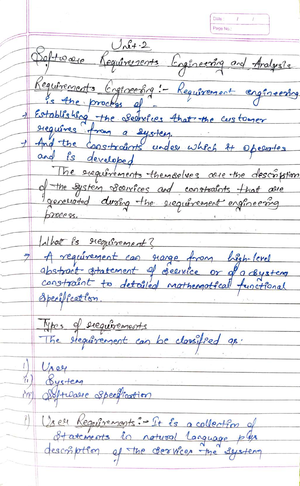 Date / /
Page No.
Unit-2
Software Requirements Engineering and Analysis
Requirements Engineering:- Requirement engineering
is the process of -
→ Establishing the services that the customer
requires from a system
→ And the constraints under which it operates
and is developed
The requirements themselves are the description
of the system services and constraints that are
generated during the requirement engineering
process.
What is requirement?
→ A requirement can range from high-level
abstract statement of service or of a system
constraint to detailed mathematical functional
specification.
Types of requirements
The requirement can be classified as:
i) User
ii) System
iii) Software Specification
i) User Requirements:- It is a collection of
statements in natural language plus
description of the services the system